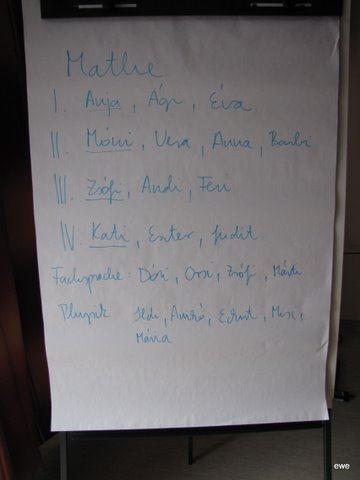 Mathe
I. Anja, Ági, Éva
II. Móni, Vera, Anna, Barbi
III. Zsófi, Andi, Feri
IV. Kati, Eszter, Judit
Fachsprache: Dóri, Orsi, Zsófi, Márti
Physik Ildi, Anikó, Ernst,
Mária
ewe